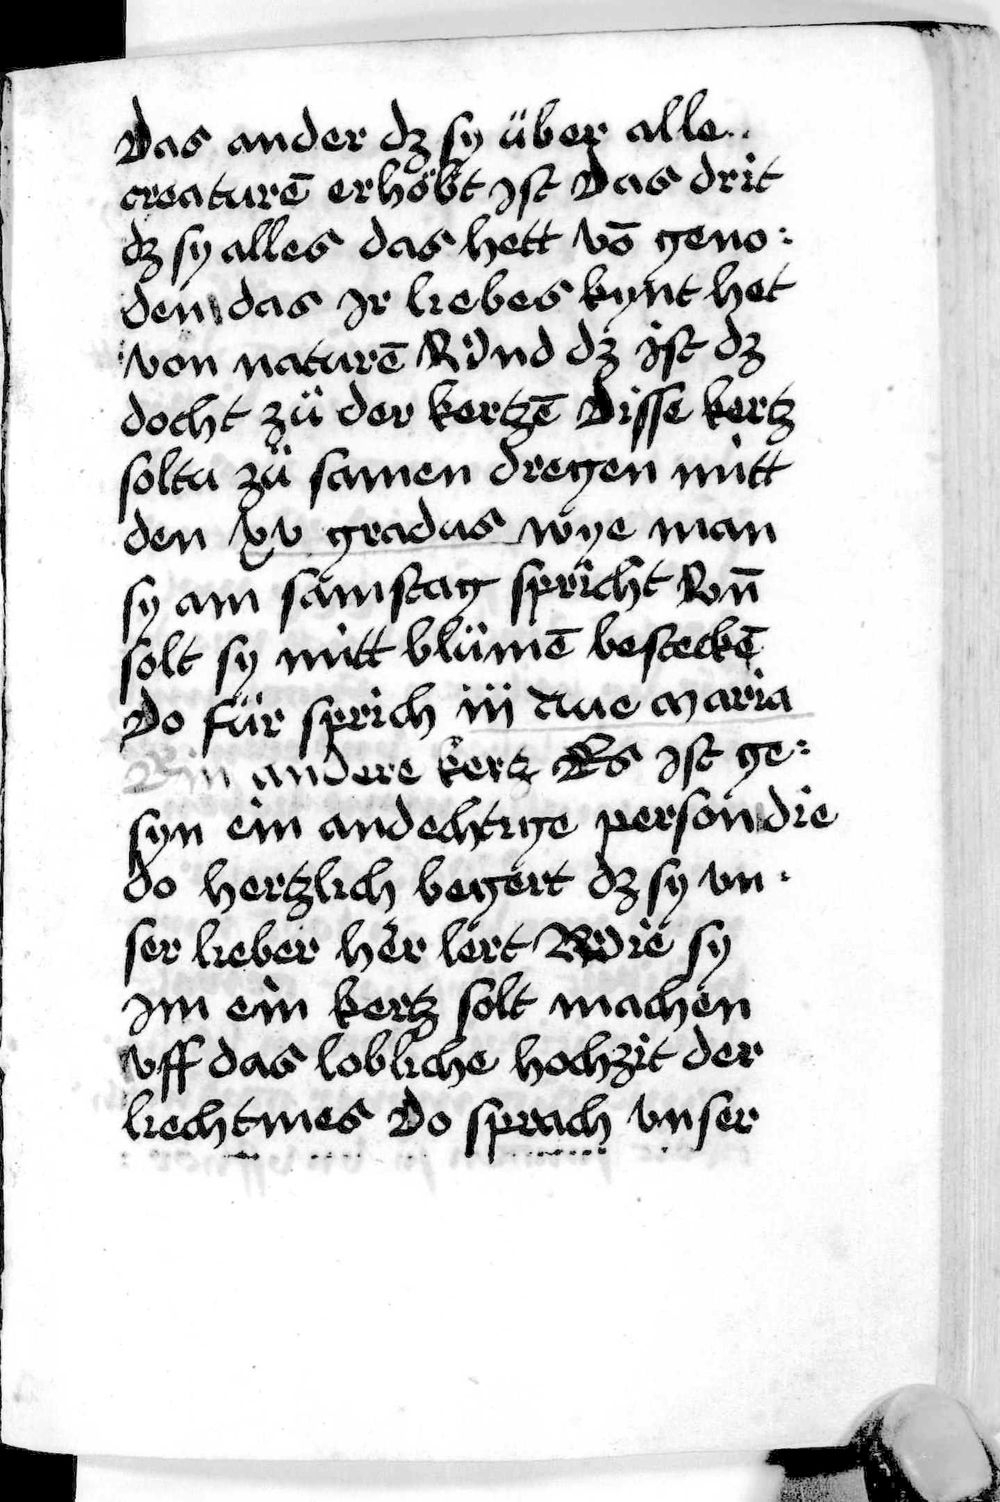 Das ander dz sy über alle
creaturē erhöbt ist Das drit
dz sy alles das hett vō geno:
den das Ir liebes kynt het
von naturē Vnd dz ist dz
docht zü der kertzē Disse kertz
soltu zü samen dregen mitt
den xv gradus wye man
sy am samstag spricht Vnd
solt sy mitt blümē besteckē
Do für sprich iij Aue Maria
Ein andere kertz Es ist ge:
syn ein andechtige person die
do hertzlich begert dz sy vn:
ser lieber her lert Wie sy
Im ein kertz solt machen
vff das lobliche hochzit der
liechtmes Do sprach vnser